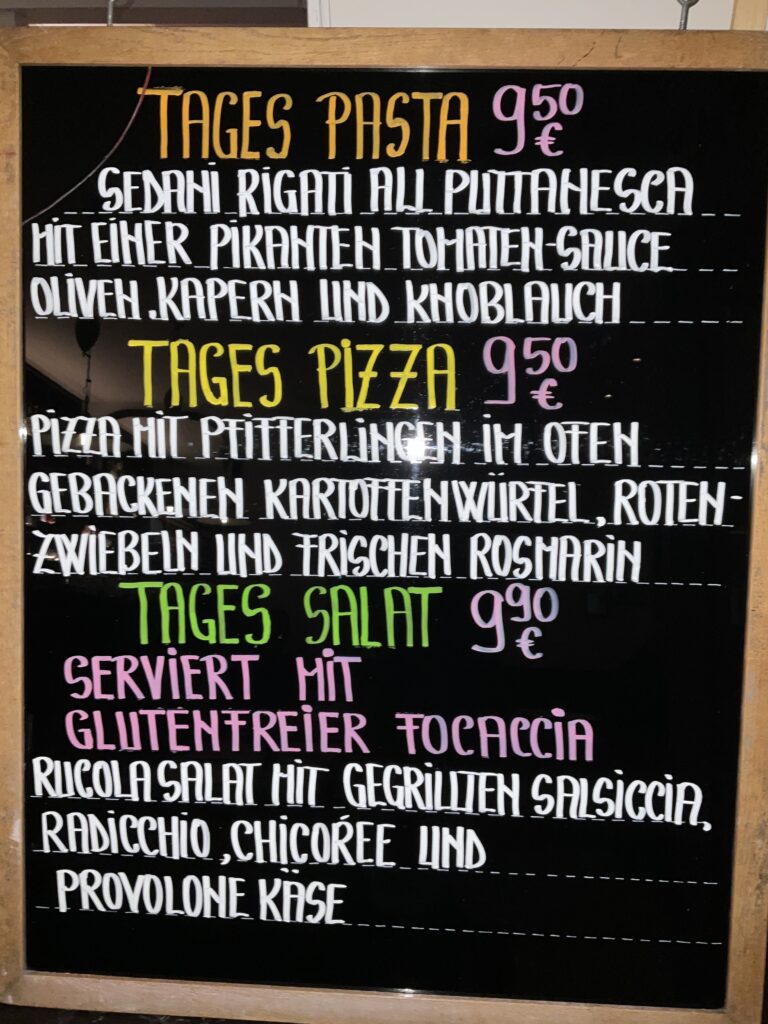 TAGES PASTA 9 50 €
SEDANI RIGATI ALL PUTTANESCA
MIT EINER PIKANTEN TOMATEN-SAUCE
OLIVEN, KAPERN UND KNOBLAUCH
TAGES PIZZA 9 50 €
PIZZA MIT PFIFFERLINGEN IM OFEN
GEBACKENEN KARTOFFENWÜRFEL, ROTEN-
ZWIEBELN UND FRISCHEN ROSMARIN
TAGES SALAT 9 90 €
SERVIERT MIT
GLUTENFREIER FOCACCIA
RUCOLASALAT MIT GEGRILLTEN SALSICCIA,
RADICCHIO, CHICORÉE UND
PROVOLONE KÄSE